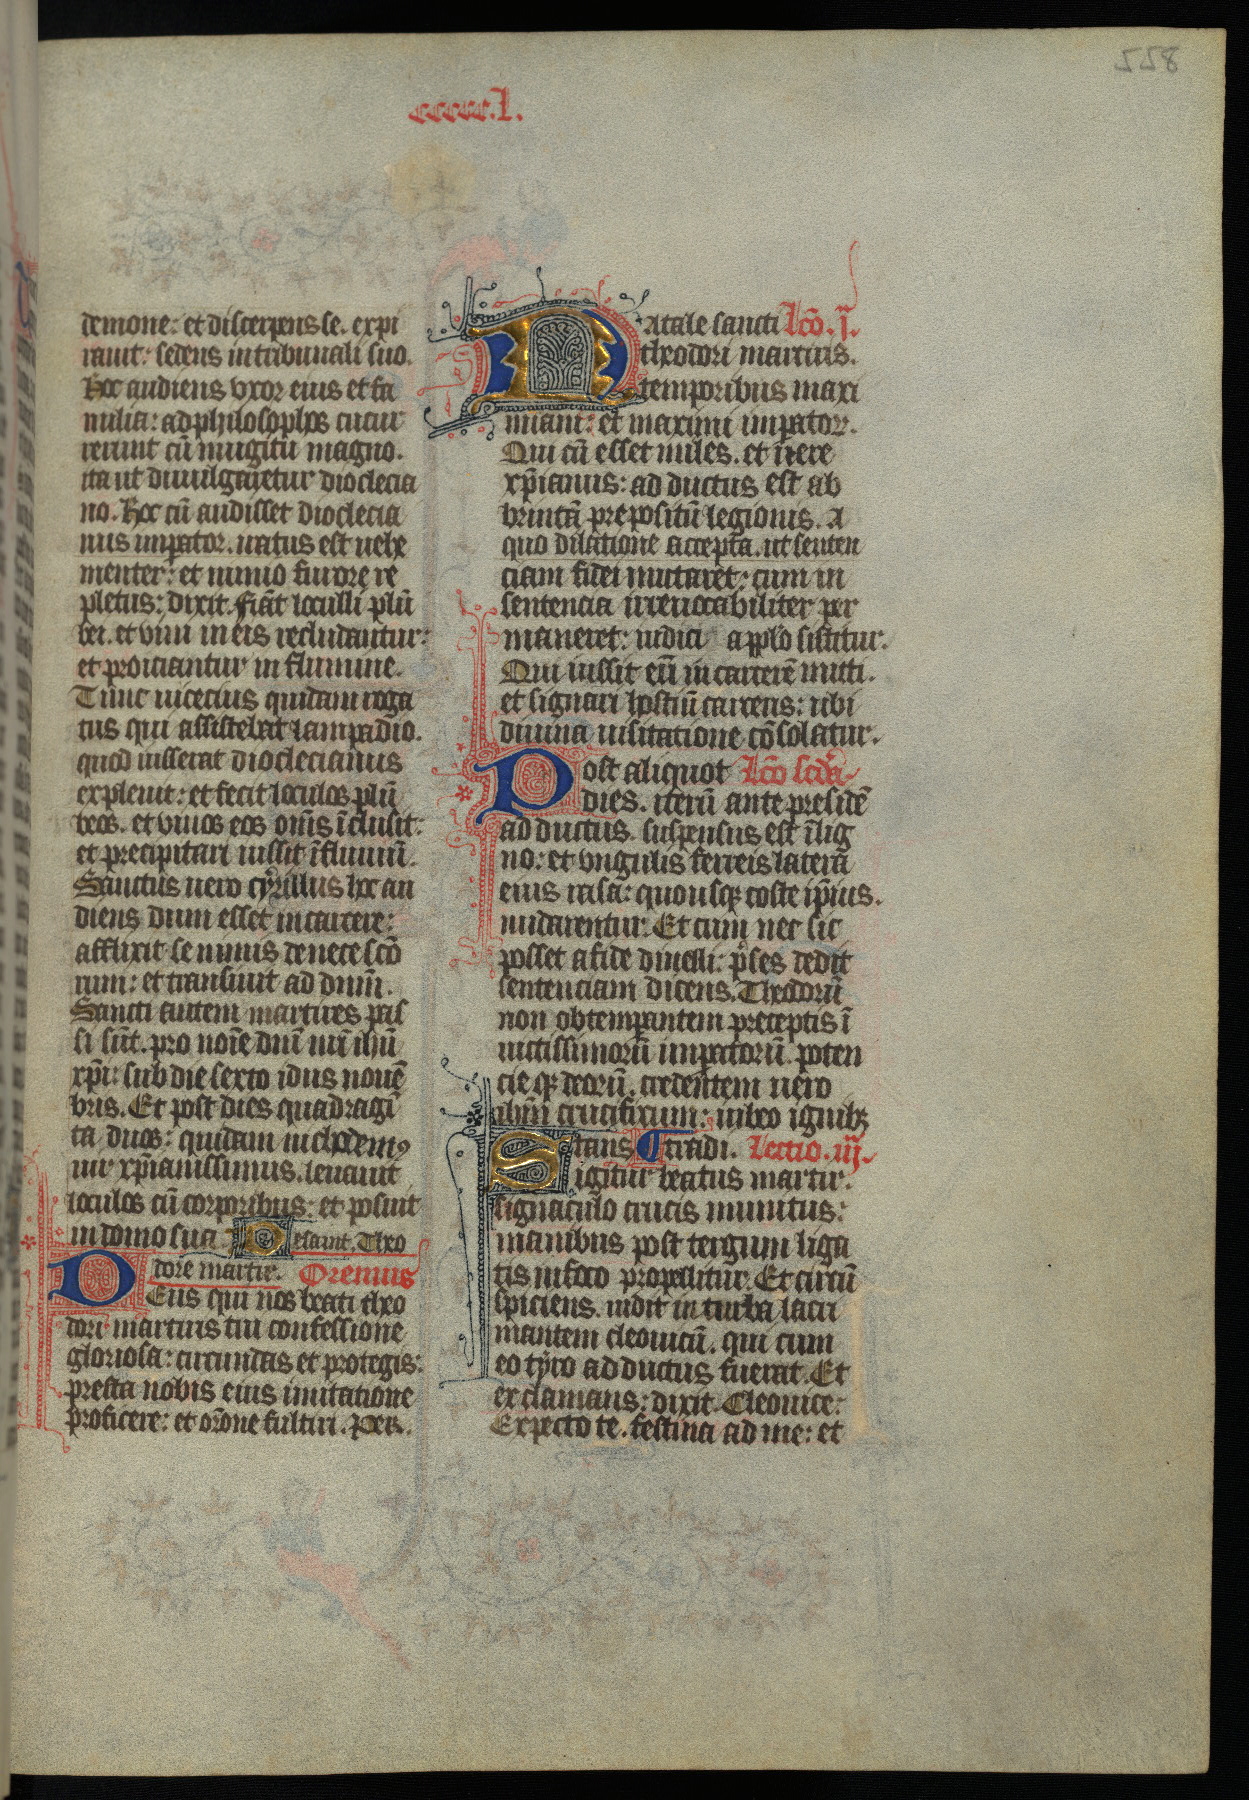 ccccc.l.
228
demone: et discerpens se. expi
rauit: sedens in tribunali suo.
Hoc audiens vxor eius et fa
milia: ad philosophos cucur
rerunt cū mugitu magno.
ita ut diuulgaretur dioclecia
no. Hoc cū audisset dioclecia
nus impator. iratus est uehe
menter: et nimio furore re
pletus: dixit. Fiāt loculli plū
bei. et viui in eis recludantur:
et proiciantur in flumine.
Tunc nicecius quidam roga
tus qui assistebat lampadio.
quod iusserat dioclecianus
expleuit: et fecit loculos plū
beos. et viuos eos om̄s īclusit:
et precipitari iussit ī fluuiū.
Sanctus uero cyrillus hoc au
diens dum esset in carcere:
afflixit se nimis de nece scō
rum: et transiuit ad dnm̄.
Sancti autem martires pas
si sūt. pro noīe dnī nrī ihū
xp̄i: sub die sexto idus nouē
bris. Et post dies quadragī
ta duos: quidam nichodemꝰ
uir xp̄ianissimus. leuauit
loculos cū corporibus: et posuit
in domo sua. D esaint. Theo
dore martir. Oremus
Deus qui nos beati theo
dori martiris tui confessione
gloriosa: circundas et protegis:
presta nobis eius imitatione
proficere: et orōne fulciri. Per.
Natale sancti Lcō. ī.
theodori martiris.
temporibus maxi
miani: et maximi impator.
Qui cū esset miles. et uere
xp̄ianus: ad ductus est ab
brinta prepositū legionis. A
quo dilatione accepta. ut senten
ciam fidei mutaret: cum in
sentencia irreuocabiliter per
maneret: iudici applo sistitur.
Qui iussit eū in carcerē mitti.
et signari hostiū carceris: ubi
diuina uisitatione cōsolatur.
Post aliquot Lcō scda
dies. iterū ante presidē
ad ductus. suspensus est ī lig
no: et vngulis ferreis latera
eius rasa: quousqꝫ coste ip̄ius.
nudarentur. Et cum nec sic
posset a fide diuelli: p̄ses dedit
sentenciam dicens. Theodorū
non obtempantem preceptis ī
uictissimorū impatorū. poten
cie qꝫ deorū. credentem uero
ihm̄ crucifixum: iubeo ignibꝫ
Stans ¶ tradi. Lectio. iij.
igitur beatus martir.
signaculo crucis munitus:
manibus post tergum liga
tis in foco propellitur. Et circū
spiciens. uidit in turba lacri
mantem cleonicū. qui cum
eo tyro ad ductus fuerat. Et
exclamans: dixit. Cleonice:
Expecto te. festina ad me: et